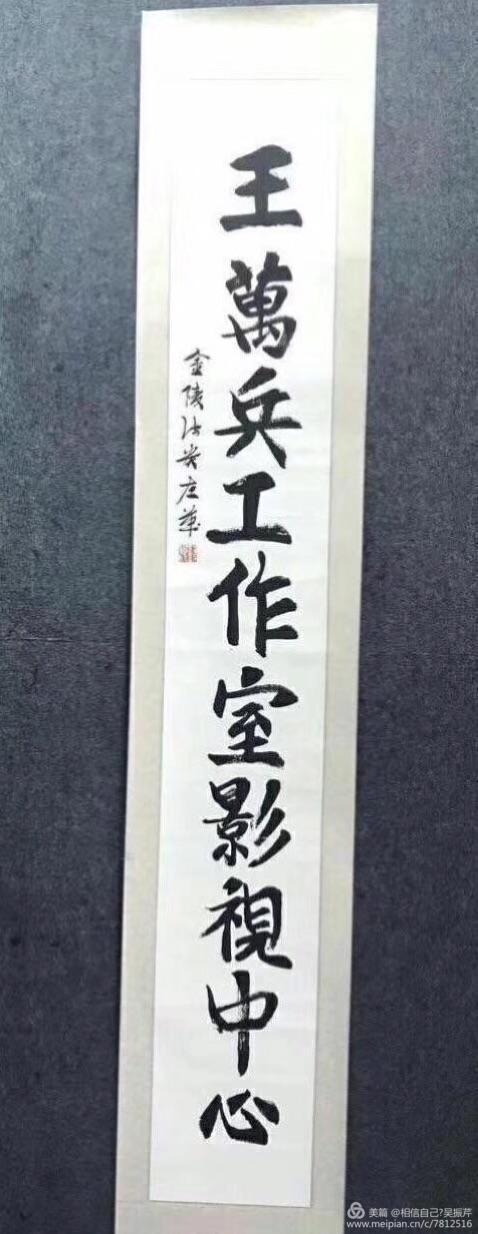 王萬兵工作室影視中心
金陵
美篇 @相信自己?吴振芹
www.meipian.cn/c/7812516